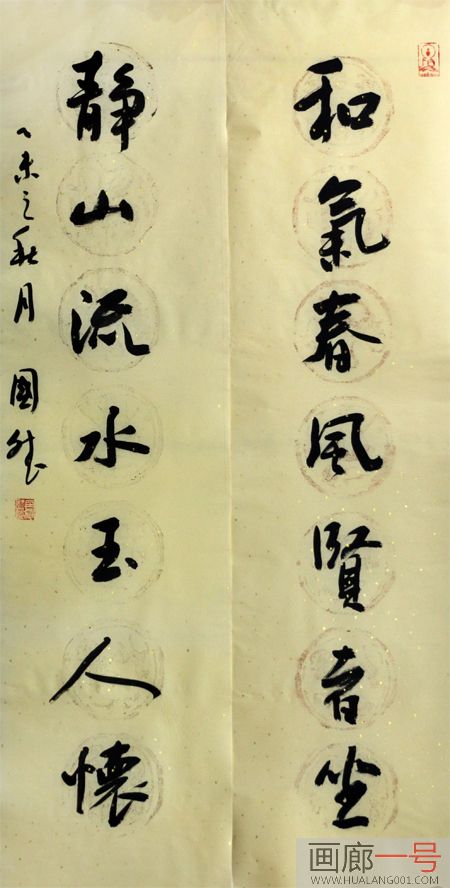 和氣春風賢者坐
靜山流水玉人懷
乀未之秋月 國斌
画廊一号
WWW.HUALANG001.COM